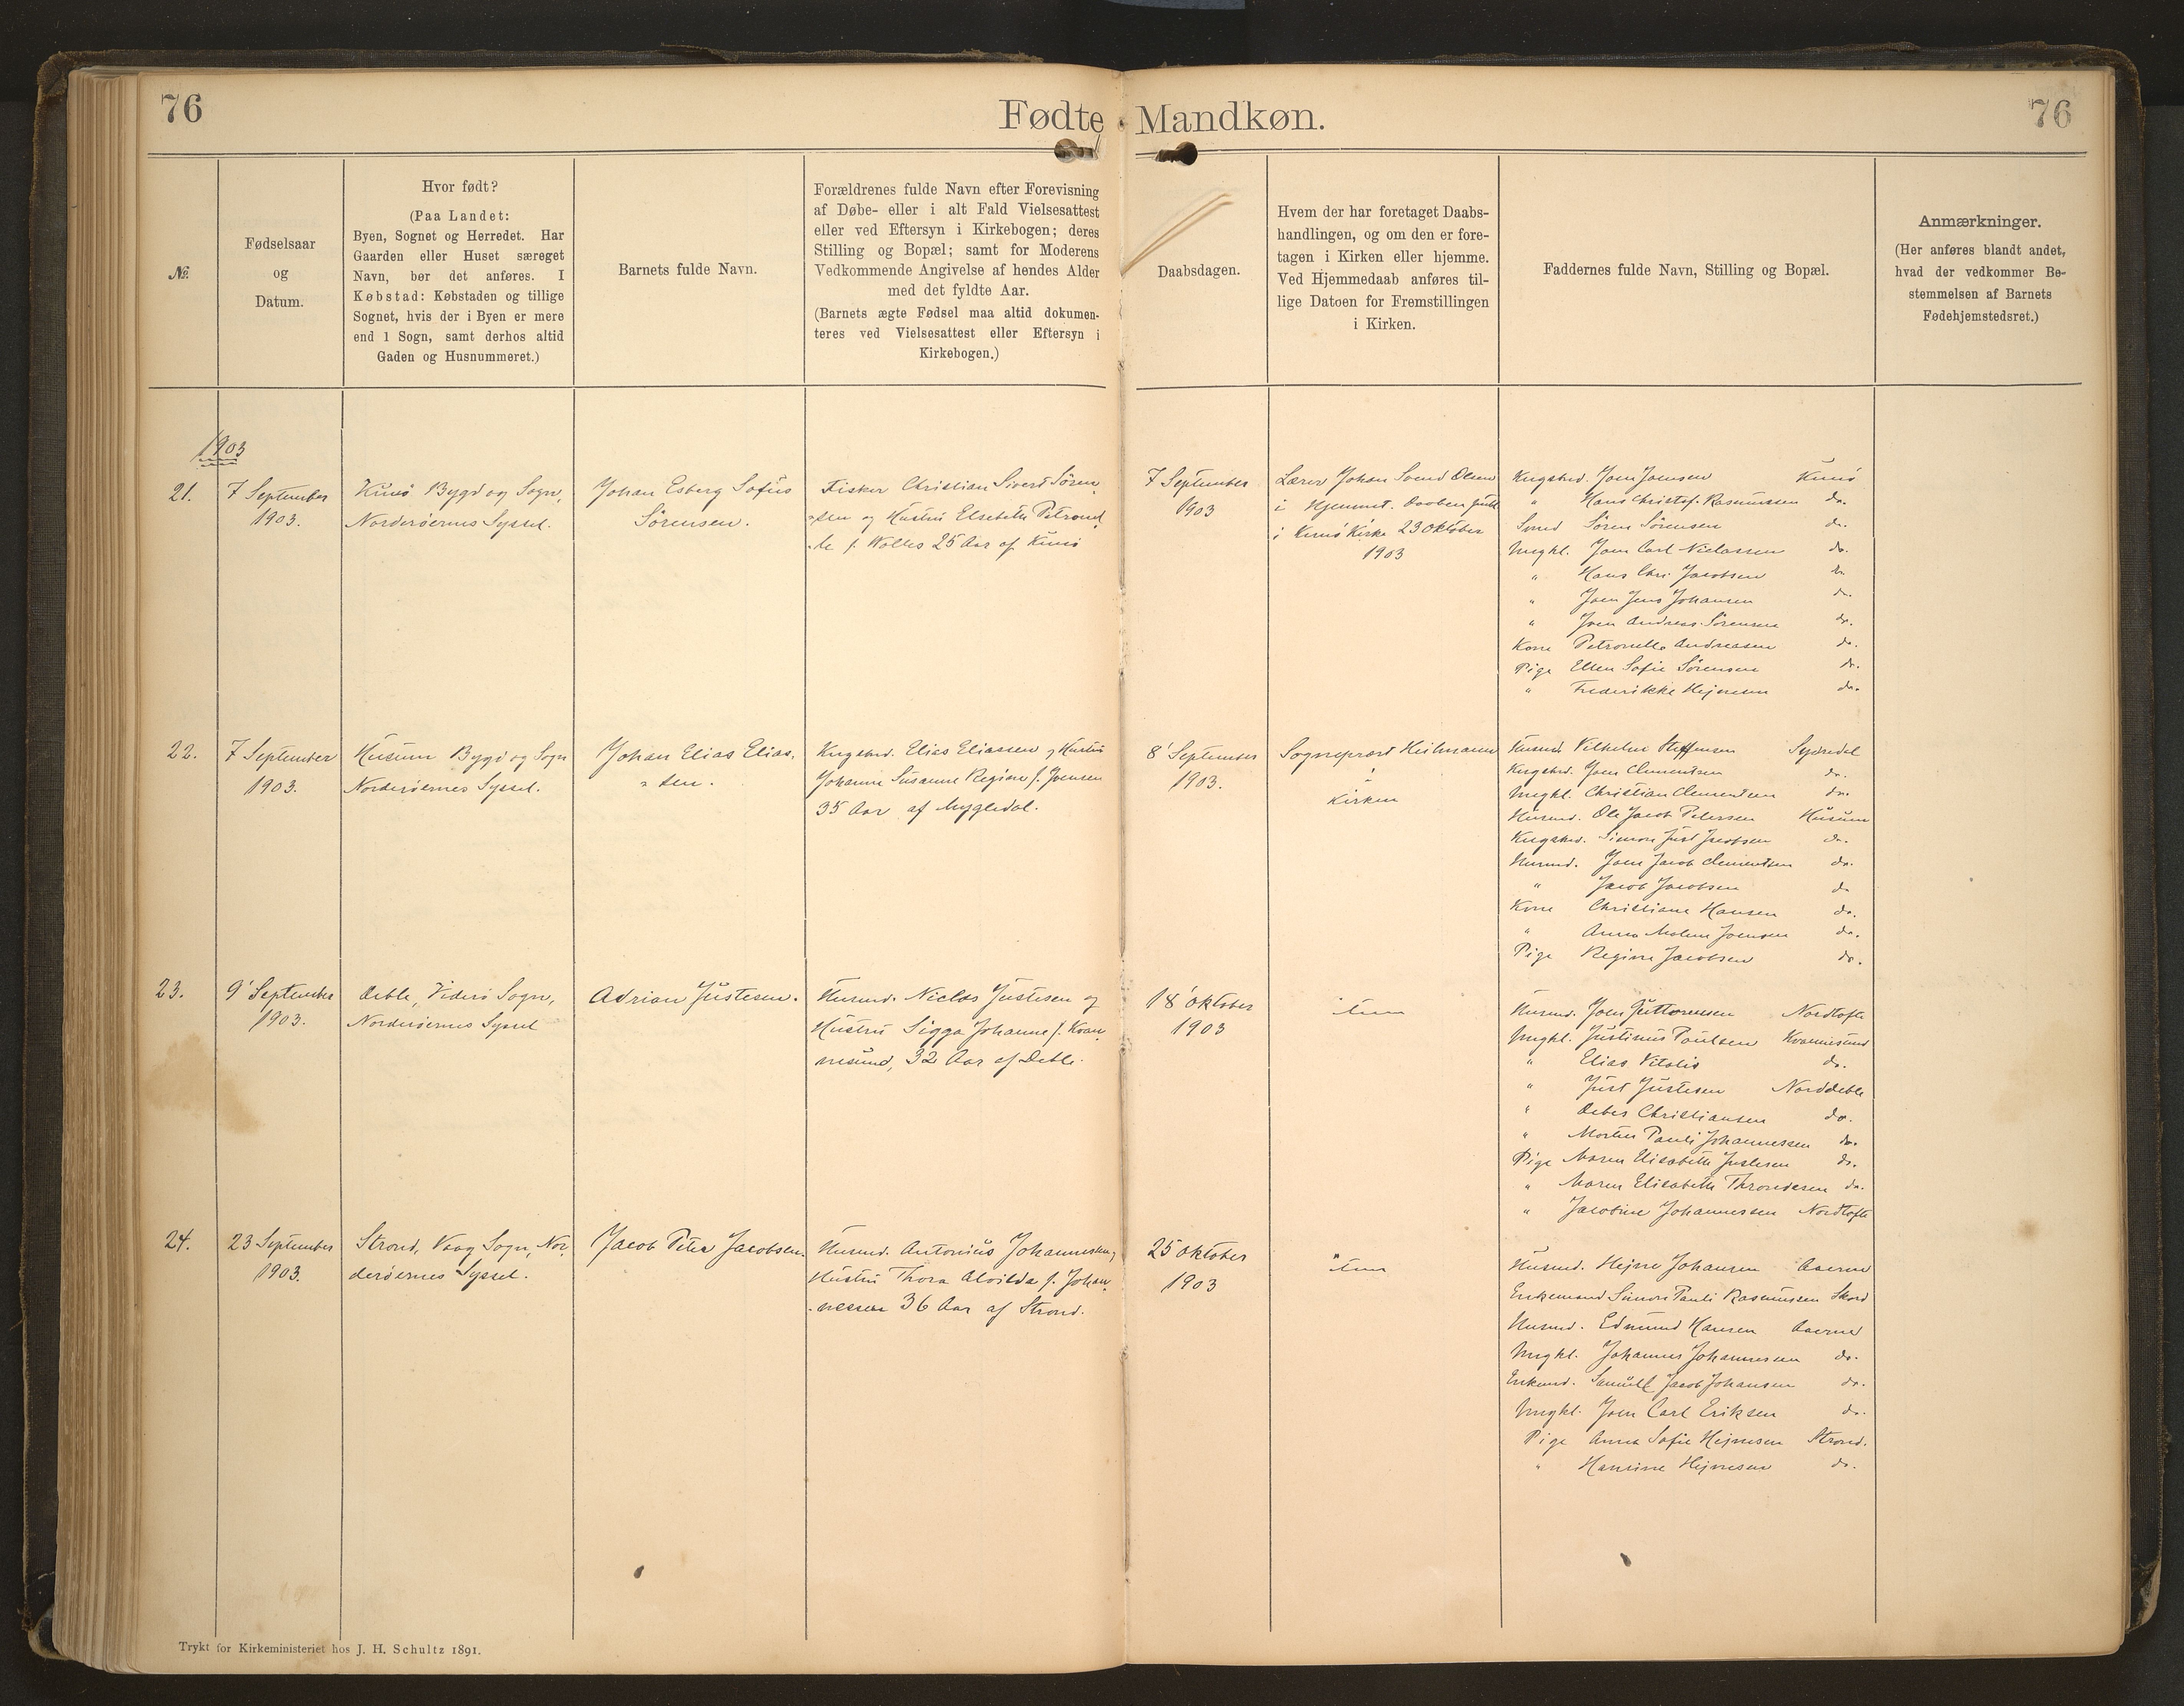 76
Fødte Mandkøn.
76
№
Fødselsaar
og
Datum.
Hvor født?
(Paa Landet:
Byen, Sognet og Herredet. Har
Gaarden eller Huset særeget
Navn, bør det anføres. I
Købstad: Købstaden og tillige
Sognet, hvis der i Byen er mere
end 1 Sogn, samt derhos altid
Gaden og Husnummeret.)
Barnets fulde Navn.
Forældrenes fulde Navn efter Forevisning
af Døbe- eller i alt Fald Vielsesattest
eller ved Eftersyn i Kirkebogen; deres
Stilling og Bopæl; samt for Moderens
Vedkommende Angivelse af hendes Alder
med det fyldte Aar.
(Barnets ægte Fødsel maa altid dokumen-
teres ved Vielsesattest eller Eftersyn i
Kirkebogen.)
Daabsdagen.
Hvem der har foretaget Daabs-
handlingen, og om den er fore-
tagen i Kirken eller hjemme.
Ved Hjemmedaab anføres til-
lige Datoen for Fremstillingen
i Kirken.
Faddernes fulde Navn, Stilling og Bopæl.
Anmærkninger.
(Her anføres blandt andet,
hvad der vedkommer Be-
stemmelsen af Barnets
Fødehjemstedsret.)
1903
21.
7 September
1903.
Kunø Bygd og Sogn,
Norderøernes Syssel.
Johan Esberg Sofus
Sørensen.
Fisker Christian Sivert Søren
sen og Hustru Elsebeth Petronel
le f. Wolles 25 Aar af Kunø
7 September
1903
Lærer Johan Svend Olsen
i Hjemmet. Daaben publ
i Kunø Kirke 23 Oktober
1903
Kngsbd. Joen Joensen Kunø
" Hans Christof. Rasmussen do.
Smed Søren Sørensen do.
Ungkl. Joen Carl Niclassen do.
" Hans Chri. Jacobsen do.
" Joen Jens Johansen do.
" Joen Andreas Sørensen do.
Kone Petronella Andreasen do.
Pige Ellen Sofie Sørensen do.
" Frederikke Hejnesen do.
22.
7 September
1903.
Husum Bygd og Sogn
Norderøernes Syssel.
Johan Elias Elias-
sen.
Kngsbd. Elias Eliassen og Hustru
Johanne Susanne Regine f. Joensen
35 Aar af Mygledal.
8' September
1903.
Sognepræst Heilmann
i
Kirken
Husmd. Vilhelm Steffensen Sydredal
Kngsbd. Joen Clementsen do.
Ungkl. Christian Clementsen do.
Husmd. Ole Jacob Petersen Husum
Kngsbd. Simon Just Jacobsen do.
Husmd. Joen Jacob Clementsen do.
" Jacob Jacobsen do
Kone Christiane Hansen do.
" Anna Malene Joensen do.
Pige Regine Jacobsen do.
23.
9' September
1903.
Deble, Viderø Sogn,
Norderøernes Syssel
Adrian Justesen.
Husmd. Niclas Justesen og
Hustru Sigga Johanne f. Kvan
nesund, 32 Aar af Deble.
18' Oktober
1903
item
Husmd. Joen Guttormsen Nordtofte
Ungkl. Justinus Poulsen Kvannesund
" Elias Vitalis do.
" Just Justesen Norddeble
" Debes Christiansen do.
" Morten Pauli Johannessen do.
Pige Maren Elisabeth Justesen do.
" Maren Elisabeth Throndesen do.
" Jacobine Johannessen Nordtofte
24.
23 September
1903.
Strond, Vaag Sogn, Nor
derøernes Syssel.
Jacob Peter Jacobsen.
Husmd. Antonius Johannesen,
Hustru Thora Alvilda f. Johan
nessen 36 Aar af Strond.
25 Oktober
1903
item
Husmd. Hejne Johansen Aaerne
Enkemand Simon Pauli Rasmussen Skord
Husmd. Edmund Hansen Aaerne
Ungkl. Johannes Johannesen do.
Enkemd. Samuel Jacob Johansen do.
Ungkl. Joen Carl Eriksen do.
Pige Anna Sofie Hejnesen Strond.
" Hansine Hejnesen do.
Trykt for Kirkeministeriet hos J. H. Schultz 1891.